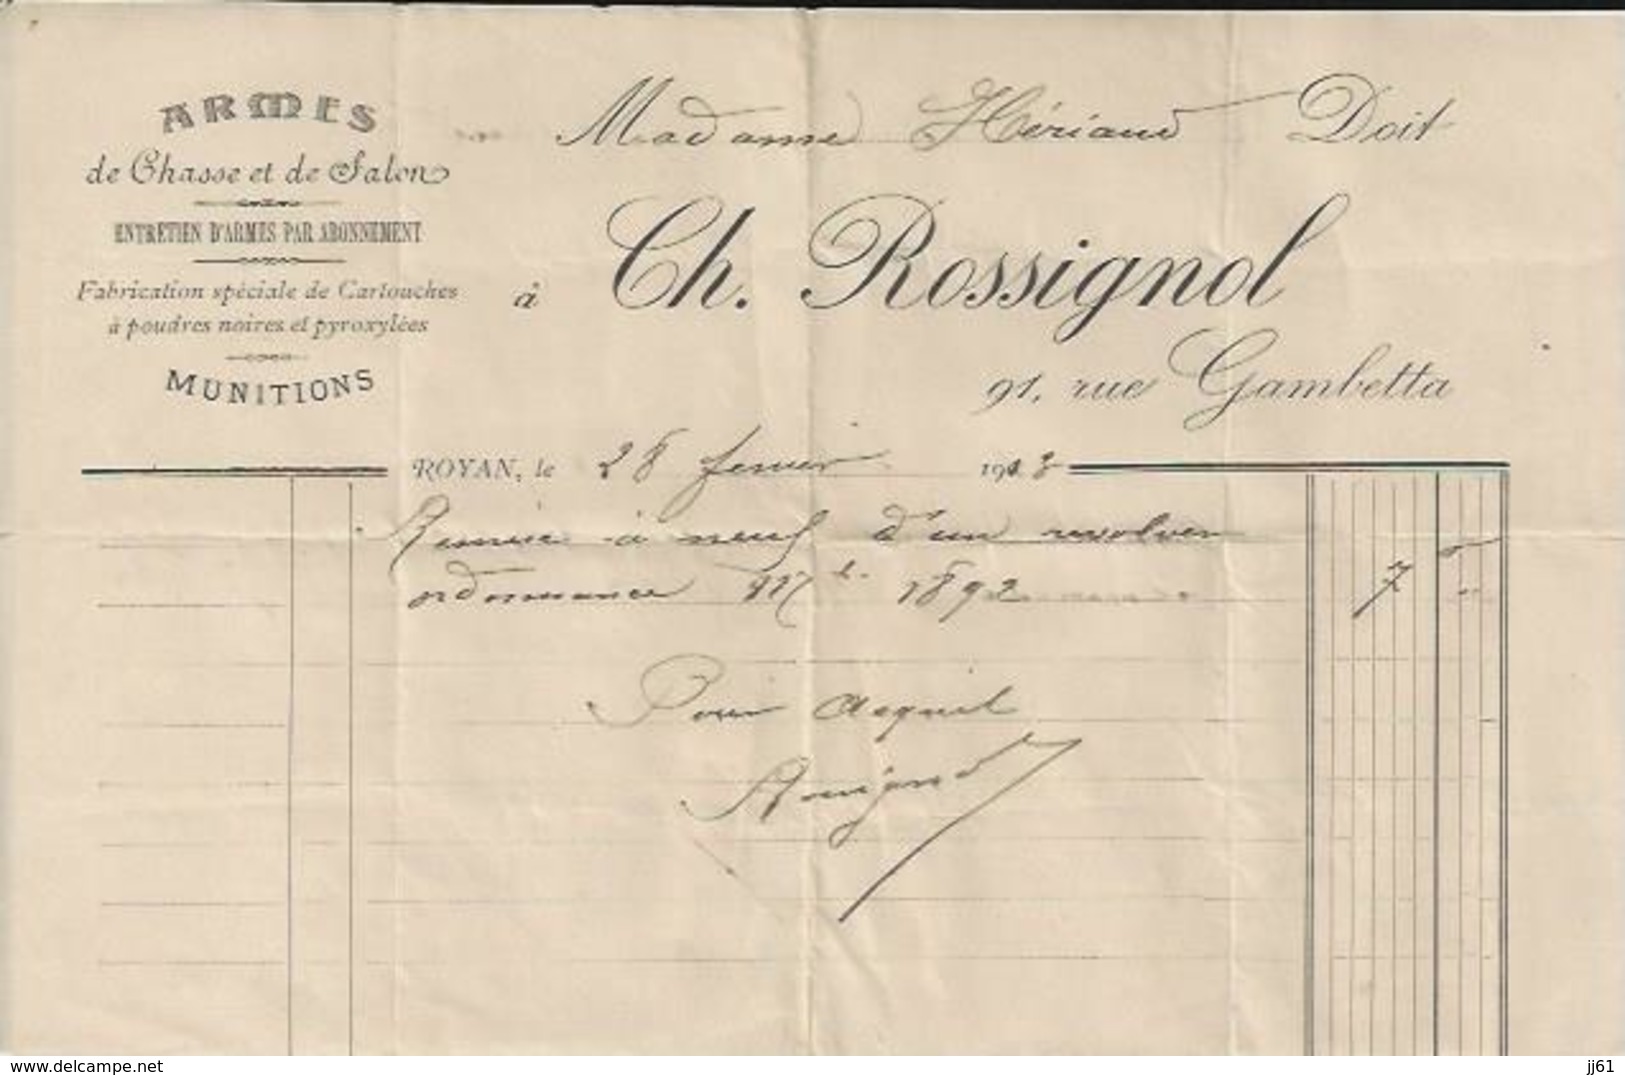 ARMES
de Chasse et de Salon
ENTRETIEN D'ARMES PAR ABONNEMENT
Fabrication spéciale de Cartouches
à poudres noires et pyroxylées
MUNITIONS
Madame Hériaud Doit
à Ch. Rossignol
91, rue Gambetta
ROYAN, le 28 fevrier 1913
Remise à neuf d'un revolver
ordonnance Mle 1892 7 "
Pour acquit
Rossignol
delcampe.net
jj61